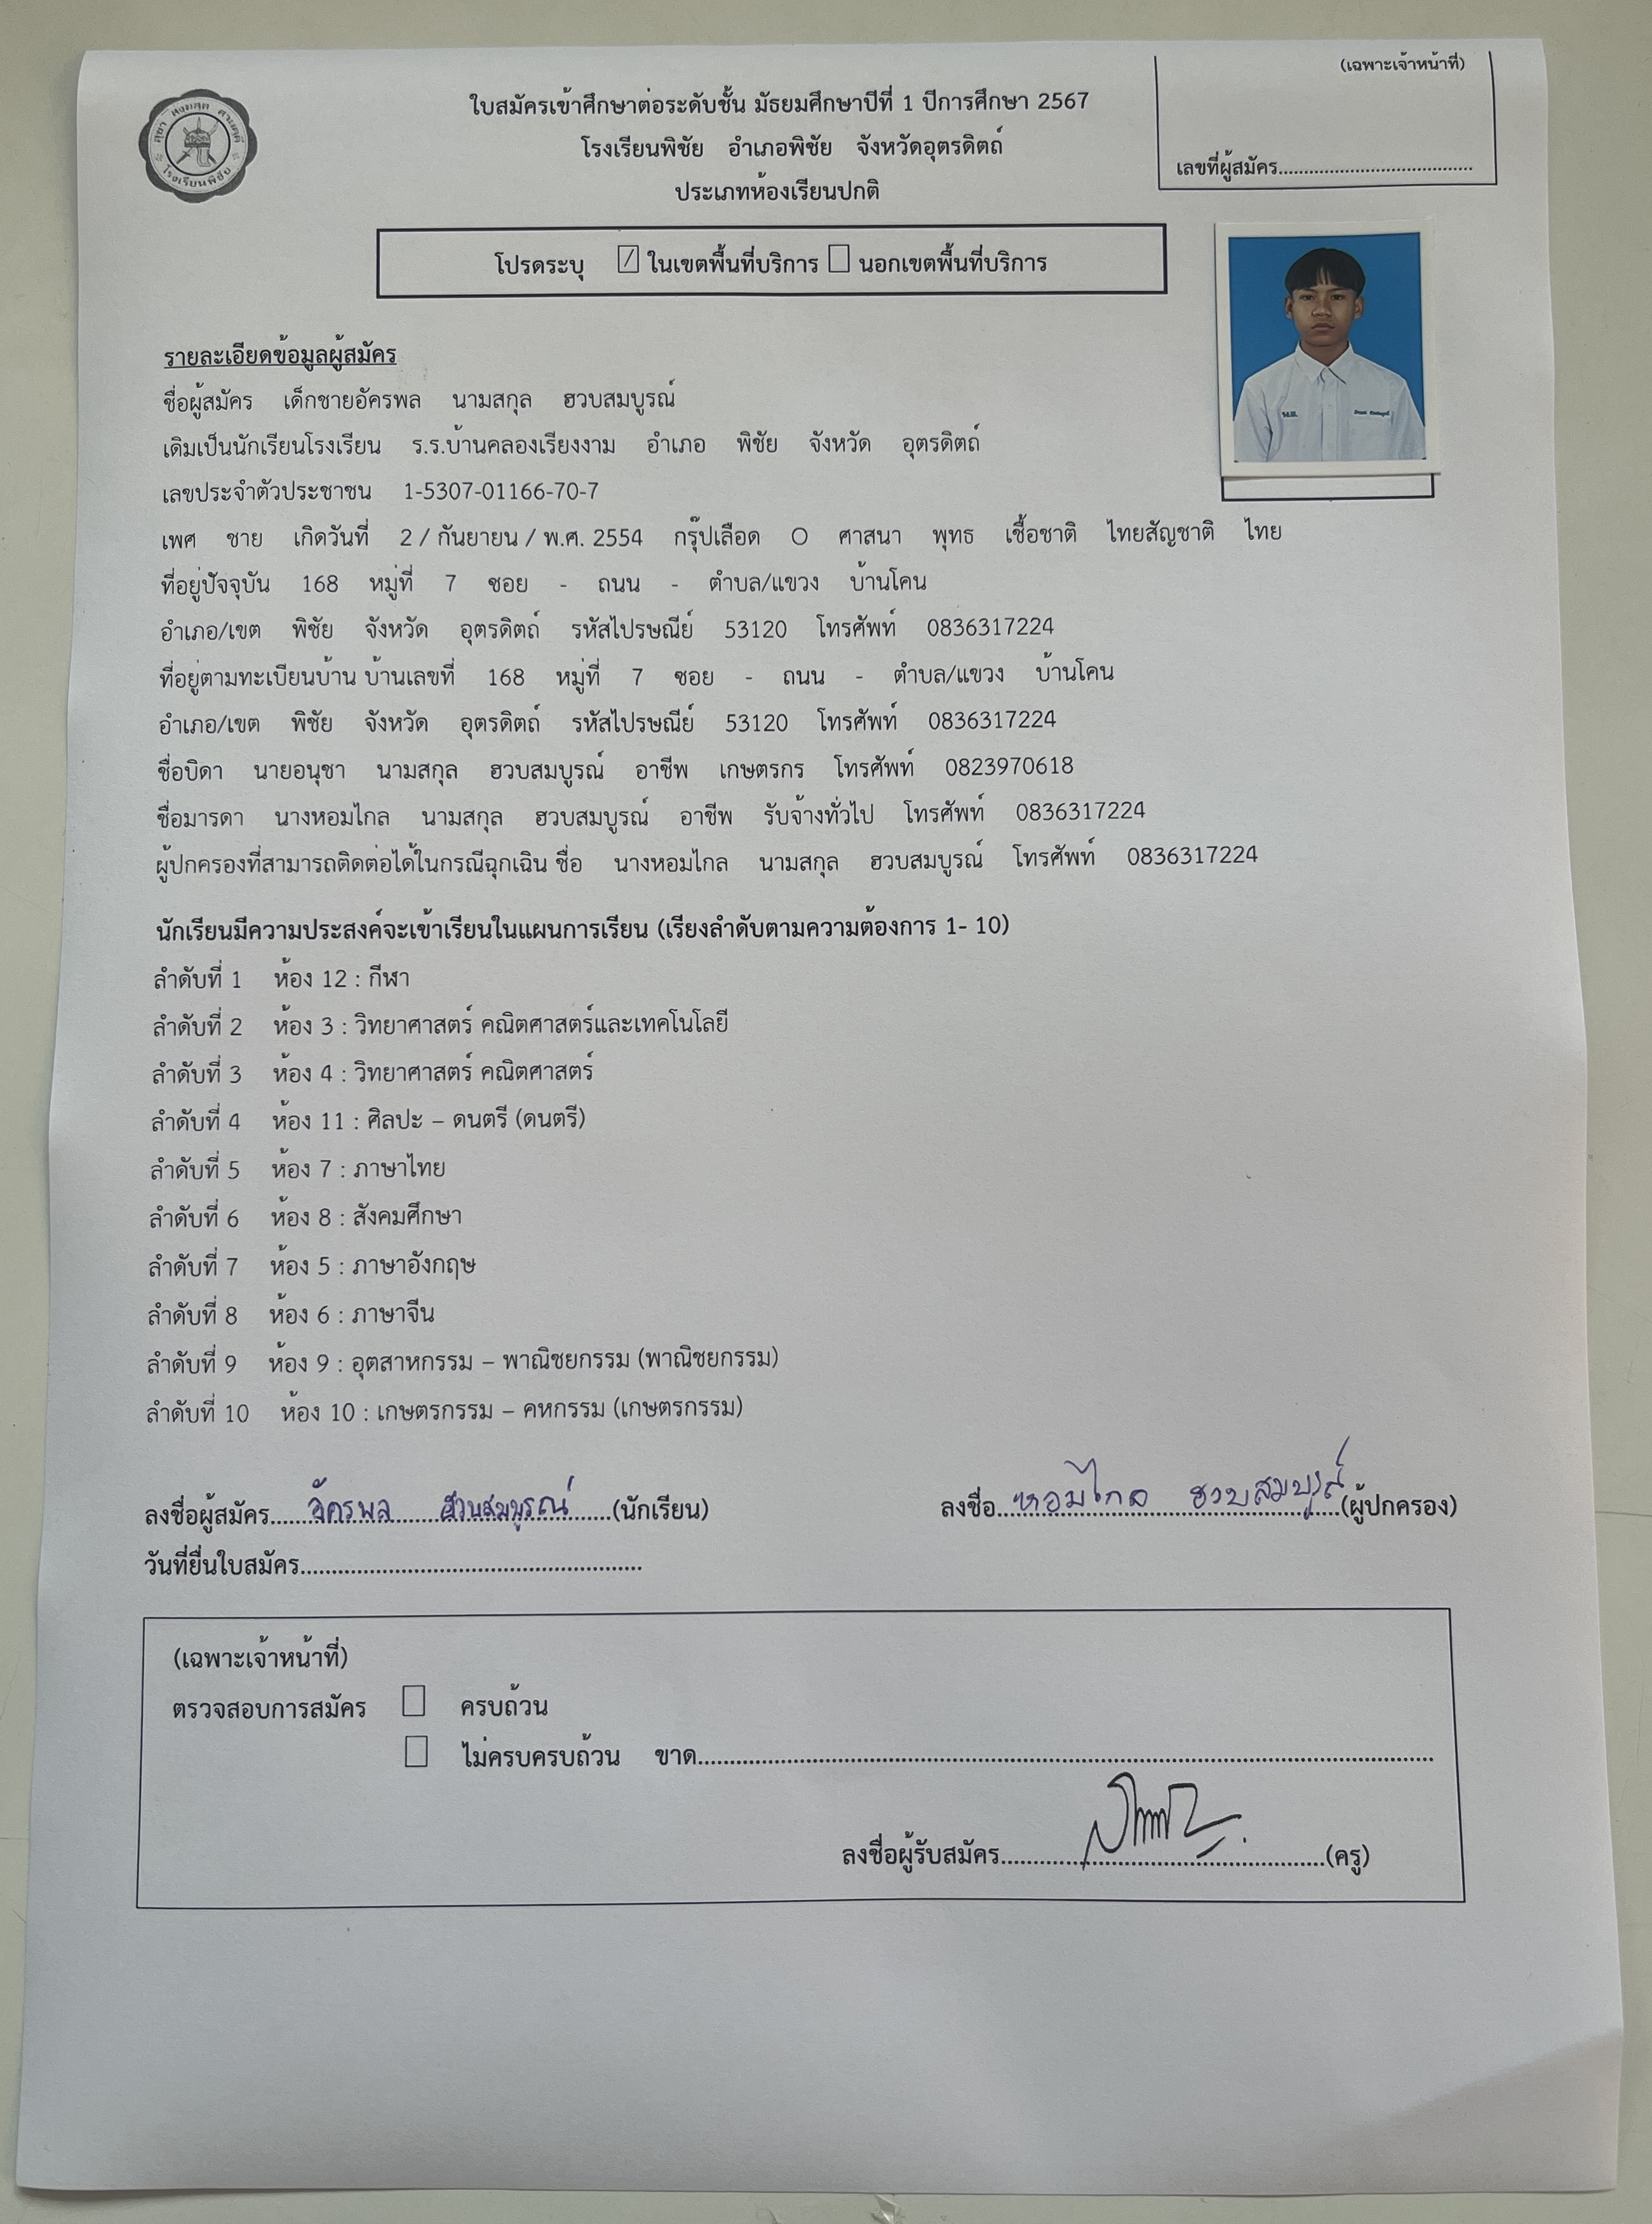 (เฉพาะเจ้าหน้าที่)
เลขที่ผู้สมัคร......................................
โรงเรียนพิชัย
ใบสมัครเข้าศึกษาต่อระดับชั้น มัธยมศึกษาปีที่ 1 ปีการศึกษา 2567
โรงเรียนพิชัย อำเภอพิชัย จังหวัดอุตรดิตถ์
ประเภทห้องเรียนปกติ
โปรดระบุ ☑ ในเขตพื้นที่บริการ ☐ นอกเขตพื้นที่บริการ
รายละเอียดข้อมูลผู้สมัคร
ชื่อผู้สมัคร เด็กชายอัครพล นามสกุล ฮวบสมบูรณ์
เดิมเป็นนักเรียนโรงเรียน ร.ร.บ้านคลองเรียงงาม อำเภอ พิชัย จังหวัด อุตรดิตถ์
เลขประจำตัวประชาชน 1-5307-01166-70-7
เพศ ชาย เกิดวันที่ 2 / กันยายน / พ.ศ. 2554 กรุ๊ปเลือด O ศาสนา พุทธ เชื้อชาติ ไทยสัญชาติ ไทย
ที่อยู่ปัจจุบัน 168 หมู่ที่ 7 ซอย - ถนน - ตำบล/แขวง บ้านโคน
อำเภอ/เขต พิชัย จังหวัด อุตรดิตถ์ รหัสไปรษณีย์ 53120 โทรศัพท์ 0836317224
ที่อยู่ตามทะเบียนบ้าน บ้านเลขที่ 168 หมู่ที่ 7 ซอย - ถนน - ตำบล/แขวง บ้านโคน
อำเภอ/เขต พิชัย จังหวัด อุตรดิตถ์ รหัสไปรษณีย์ 53120 โทรศัพท์ 0836317224
ชื่อบิดา นายอนุชา นามสกุล ฮวบสมบูรณ์ อาชีพ เกษตรกร โทรศัพท์ 0823970618
ชื่อมารดา นางหอมไกล นามสกุล ฮวบสมบูรณ์ อาชีพ รับจ้างทั่วไป โทรศัพท์ 0836317224
ผู้ปกครองที่สามารถติดต่อได้ในกรณีฉุกเฉิน ชื่อ นางหอมไกล นามสกุล ฮวบสมบูรณ์ โทรศัพท์ 0836317224
นักเรียนมีความประสงค์จะเข้าเรียนในแผนการเรียน (เรียงลำดับตามความต้องการ 1- 10)
ลำดับที่ 1 ห้อง 12 : กีฬา
ลำดับที่ 2 ห้อง 3 : วิทยาศาสตร์ คณิตศาสตร์และเทคโนโลยี
ลำดับที่ 3 ห้อง 4 : วิทยาศาสตร์ คณิตศาสตร์
ลำดับที่ 4 ห้อง 11 : ศิลปะ – ดนตรี (ดนตรี)
ลำดับที่ 5 ห้อง 7 : ภาษาไทย
ลำดับที่ 6 ห้อง 8 : สังคมศึกษา
ลำดับที่ 7 ห้อง 5 : ภาษาอังกฤษ
ลำดับที่ 8 ห้อง 6 : ภาษาจีน
ลำดับที่ 9 ห้อง 9 : อุตสาหกรรม – พาณิชยกรรม (พาณิชยกรรม)
ลำดับที่ 10 ห้อง 10 : เกษตรกรรม – คหกรรม (เกษตรกรรม)
ลงชื่อผู้สมัคร....อัครพล ฮวบสมบูรณ์....(นักเรียน) ลงชื่อ...หอมไกล ฮวบสมบูรณ์...(ผู้ปกครอง)
วันที่ยื่นใบสมัคร......................................................
(เฉพาะเจ้าหน้าที่)
ตรวจสอบการสมัคร ☐ ครบถ้วน
☐ ไม่ครบครบถ้วน ขาด......................................................
ลงชื่อผู้รับสมัคร......................................................(ครู)